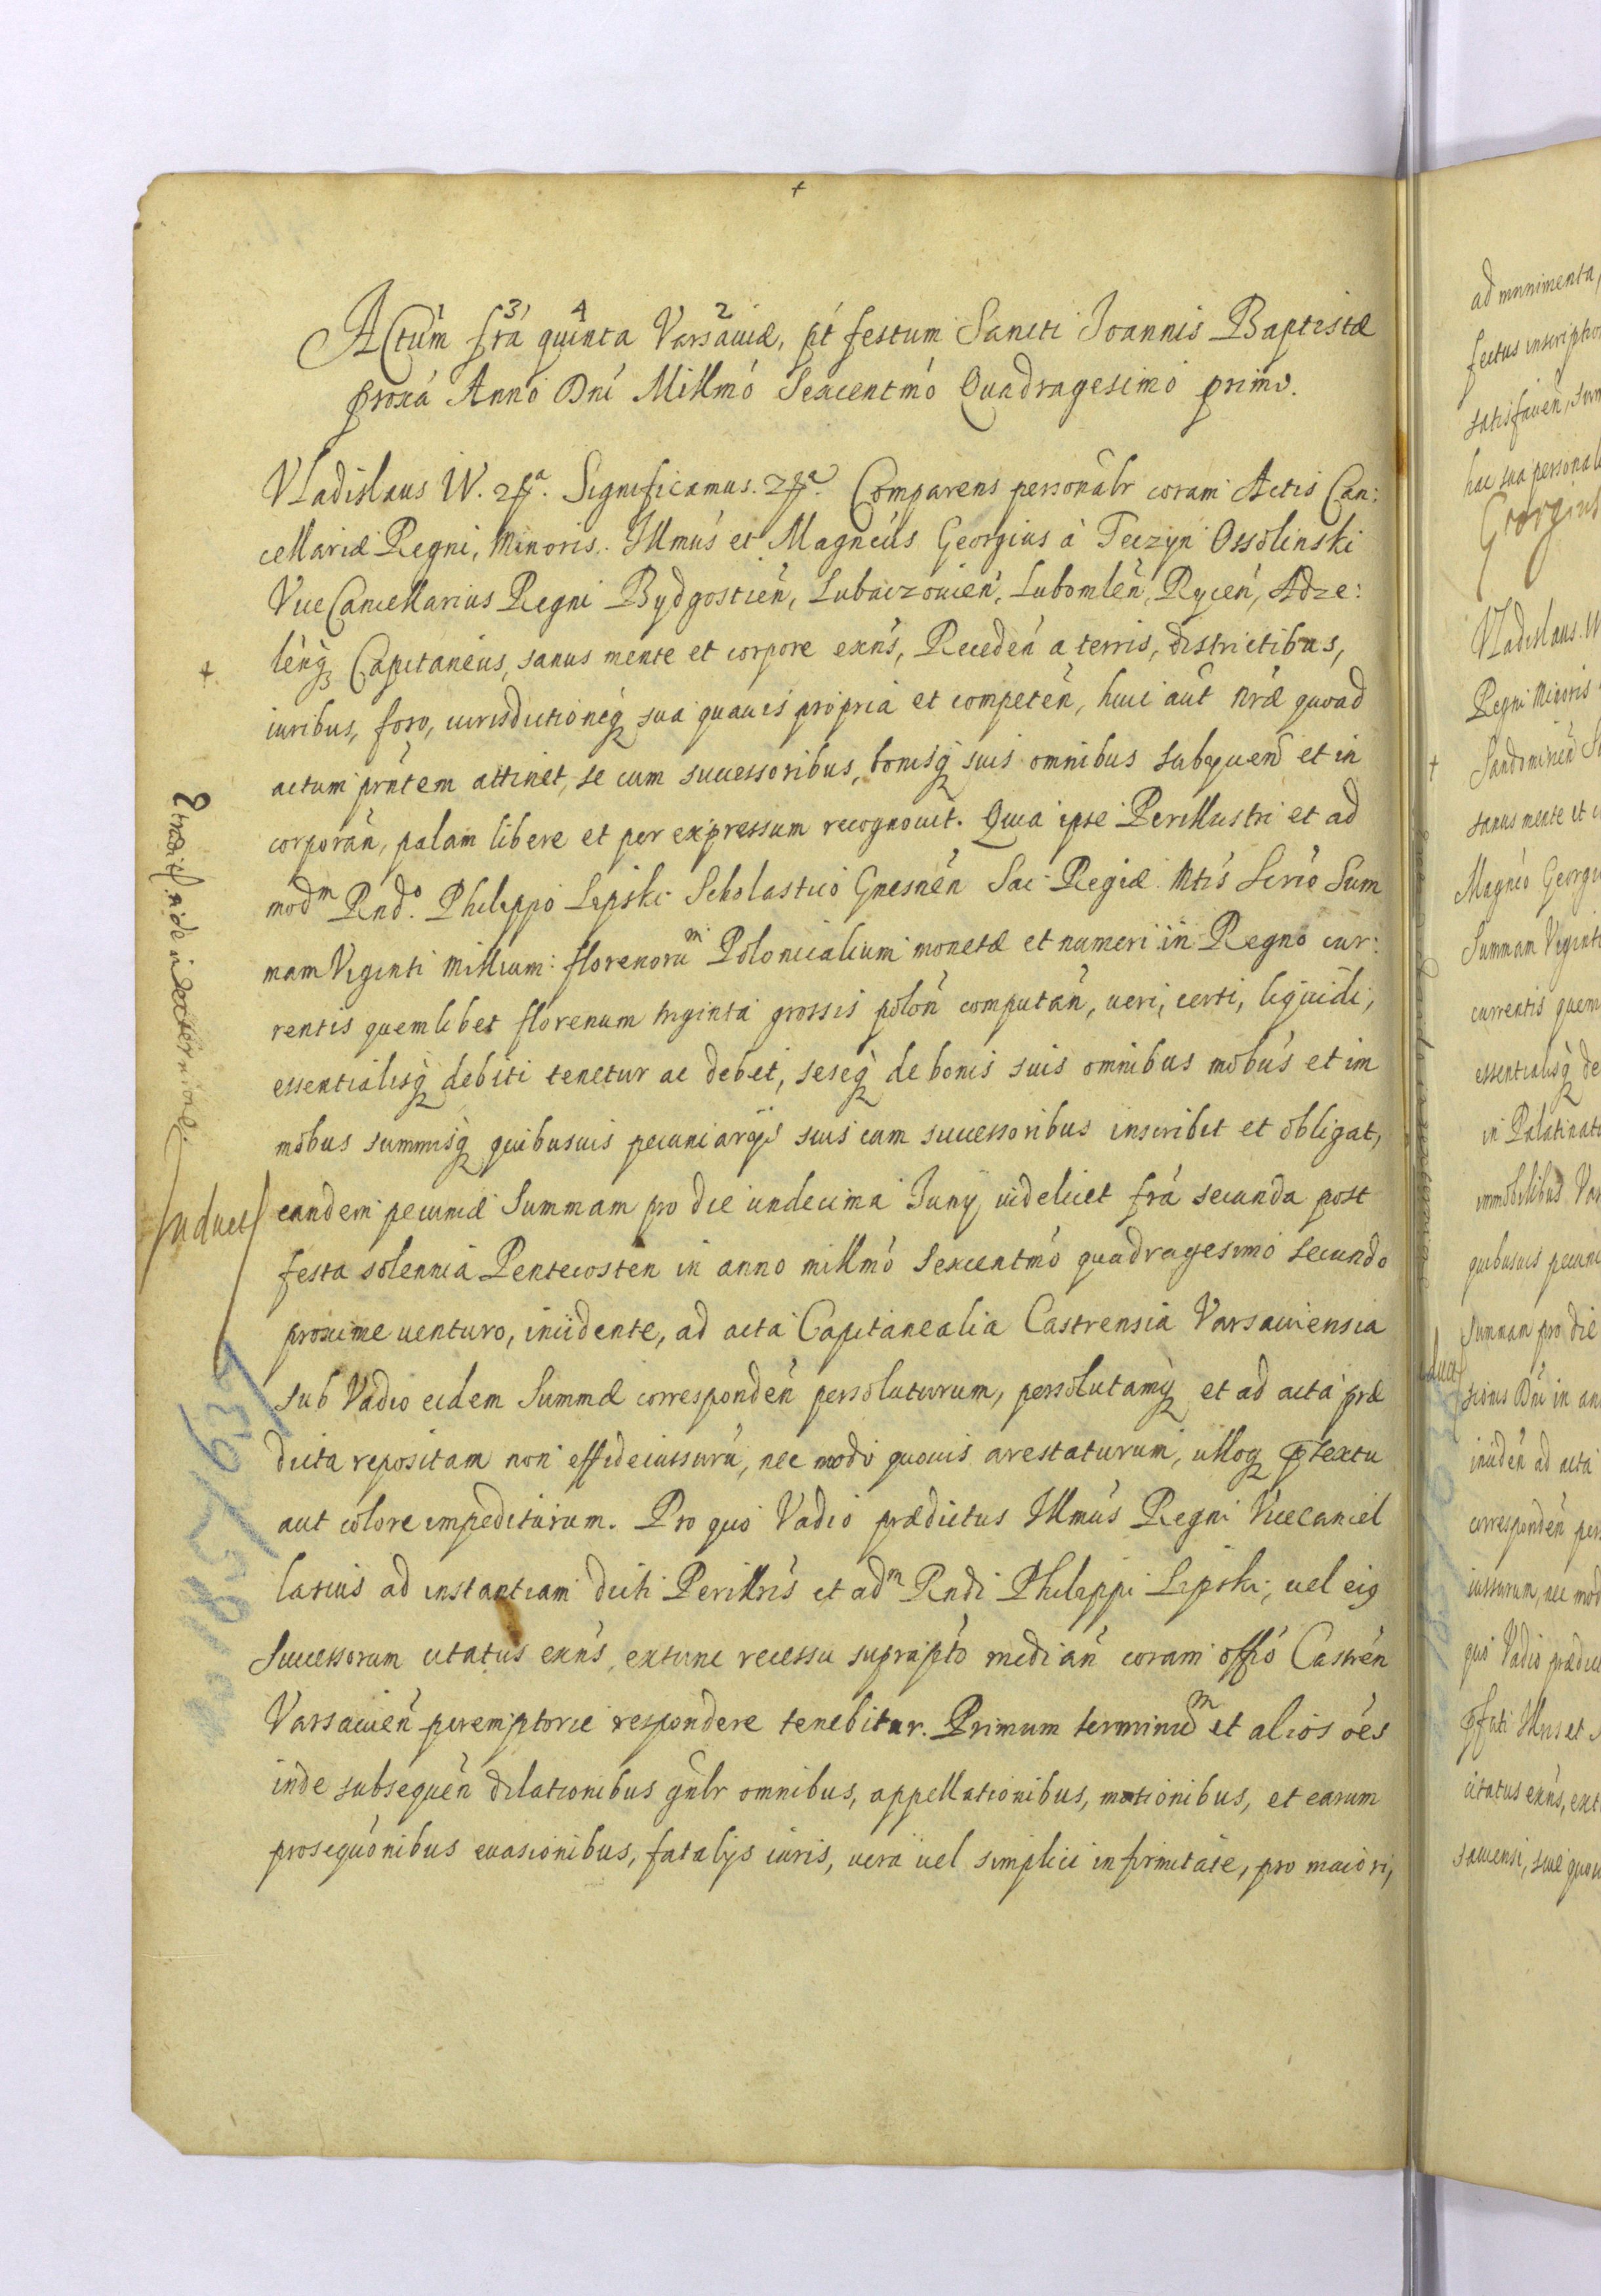 Actum fra quinta Varsauiæ, pt festum Sancti Joannis Baptistæ
proxa Anno Dni Millmo Sexcentmo Quadragesimo primo.
Vladislaus IV. Significamus. Comparens personalr coram Actis Can:
cellariæ Regni, Minoris. Illmus et Magncus Georgius à Teczyn Ossolinski
ViceCancellarius Regni Bydgostien, Lubaczouien, Lubomlen, Rycen, Adze:
lenq Capitaneus, sanus mente et corpore exns, Receden a terris, districtibus,
iuribus, foro, iurisdictioneq sua quauis propria et competen, huic aut nræ quoad
actum pntem attinet, se cum successoribus, bonisq suis omnibus subijciend et in
corporan, palam libere et per expressum recognouit. Quia ipse Perillustri et ad
modm Rndo. Philippo Lipski Scholastico Gnesnen Sac Regiæ Mtis Scrio Sum
mam Viginti Millium florenorum Polonicalium monetæ et numeri in Regno cur:
rentis quemlibet florenum triginta grossis polon computan, ueri, certi, liquidi,
essentialisq debiti tenetur ac debet, seseq de bonis suis omnibus mobus et im
mobus summisq quibusuis pecuniarijs suis cum successoribus inscribit et obligat,
eandem pecuniæ Summam pro die undecima Juny uidelicet fra secunda post
festa solennia Pentecosten in anno millmo sexcentmo quadragesimo secundo
proxime uenturo, incidente, ad acta Capitanealia Castrensia Varsauiensia
sub Vadio eidem Summæ corresponden persoluturum, persolutamq et ad acta præ
dicta repositam non effideiussuru, nec modo quouis arestaturum, ulloq ptextu
aut colore impediturum. Pro quo Vadio prædictus Illmus Regni Vicecancel
larius ad instantiam dicti Perillris et adm Rndi Philippi Lipski, uel eig
Successorum citatus exns, extunc recessu suprapto median coram offio Castren
Varsauien peremptorie respondere tenebitur. Primum terminum et alios oes
inde subsequen dilationibus gnlr omnibus, appellationibus, motionibus, et earum
prosequonibus euasionibus, fatalijs iuris, uera uel simplici infirmitate, pro maiori,
ad munimenta,
hac sua personali
Georgius
Vladislaus. IV
Regni Minoris
sanus mente et c
Magnco Georgi
Summam Viginti
currentis quem
essentialisq de
in Palatinatu
immobilibus Var
quibusuis pecuni
Summam pro die
sionis Dni in an
inciden ad acta
corresponden pers
iussurum, nec mod
quo Vadio prædic
citatus exns, ext